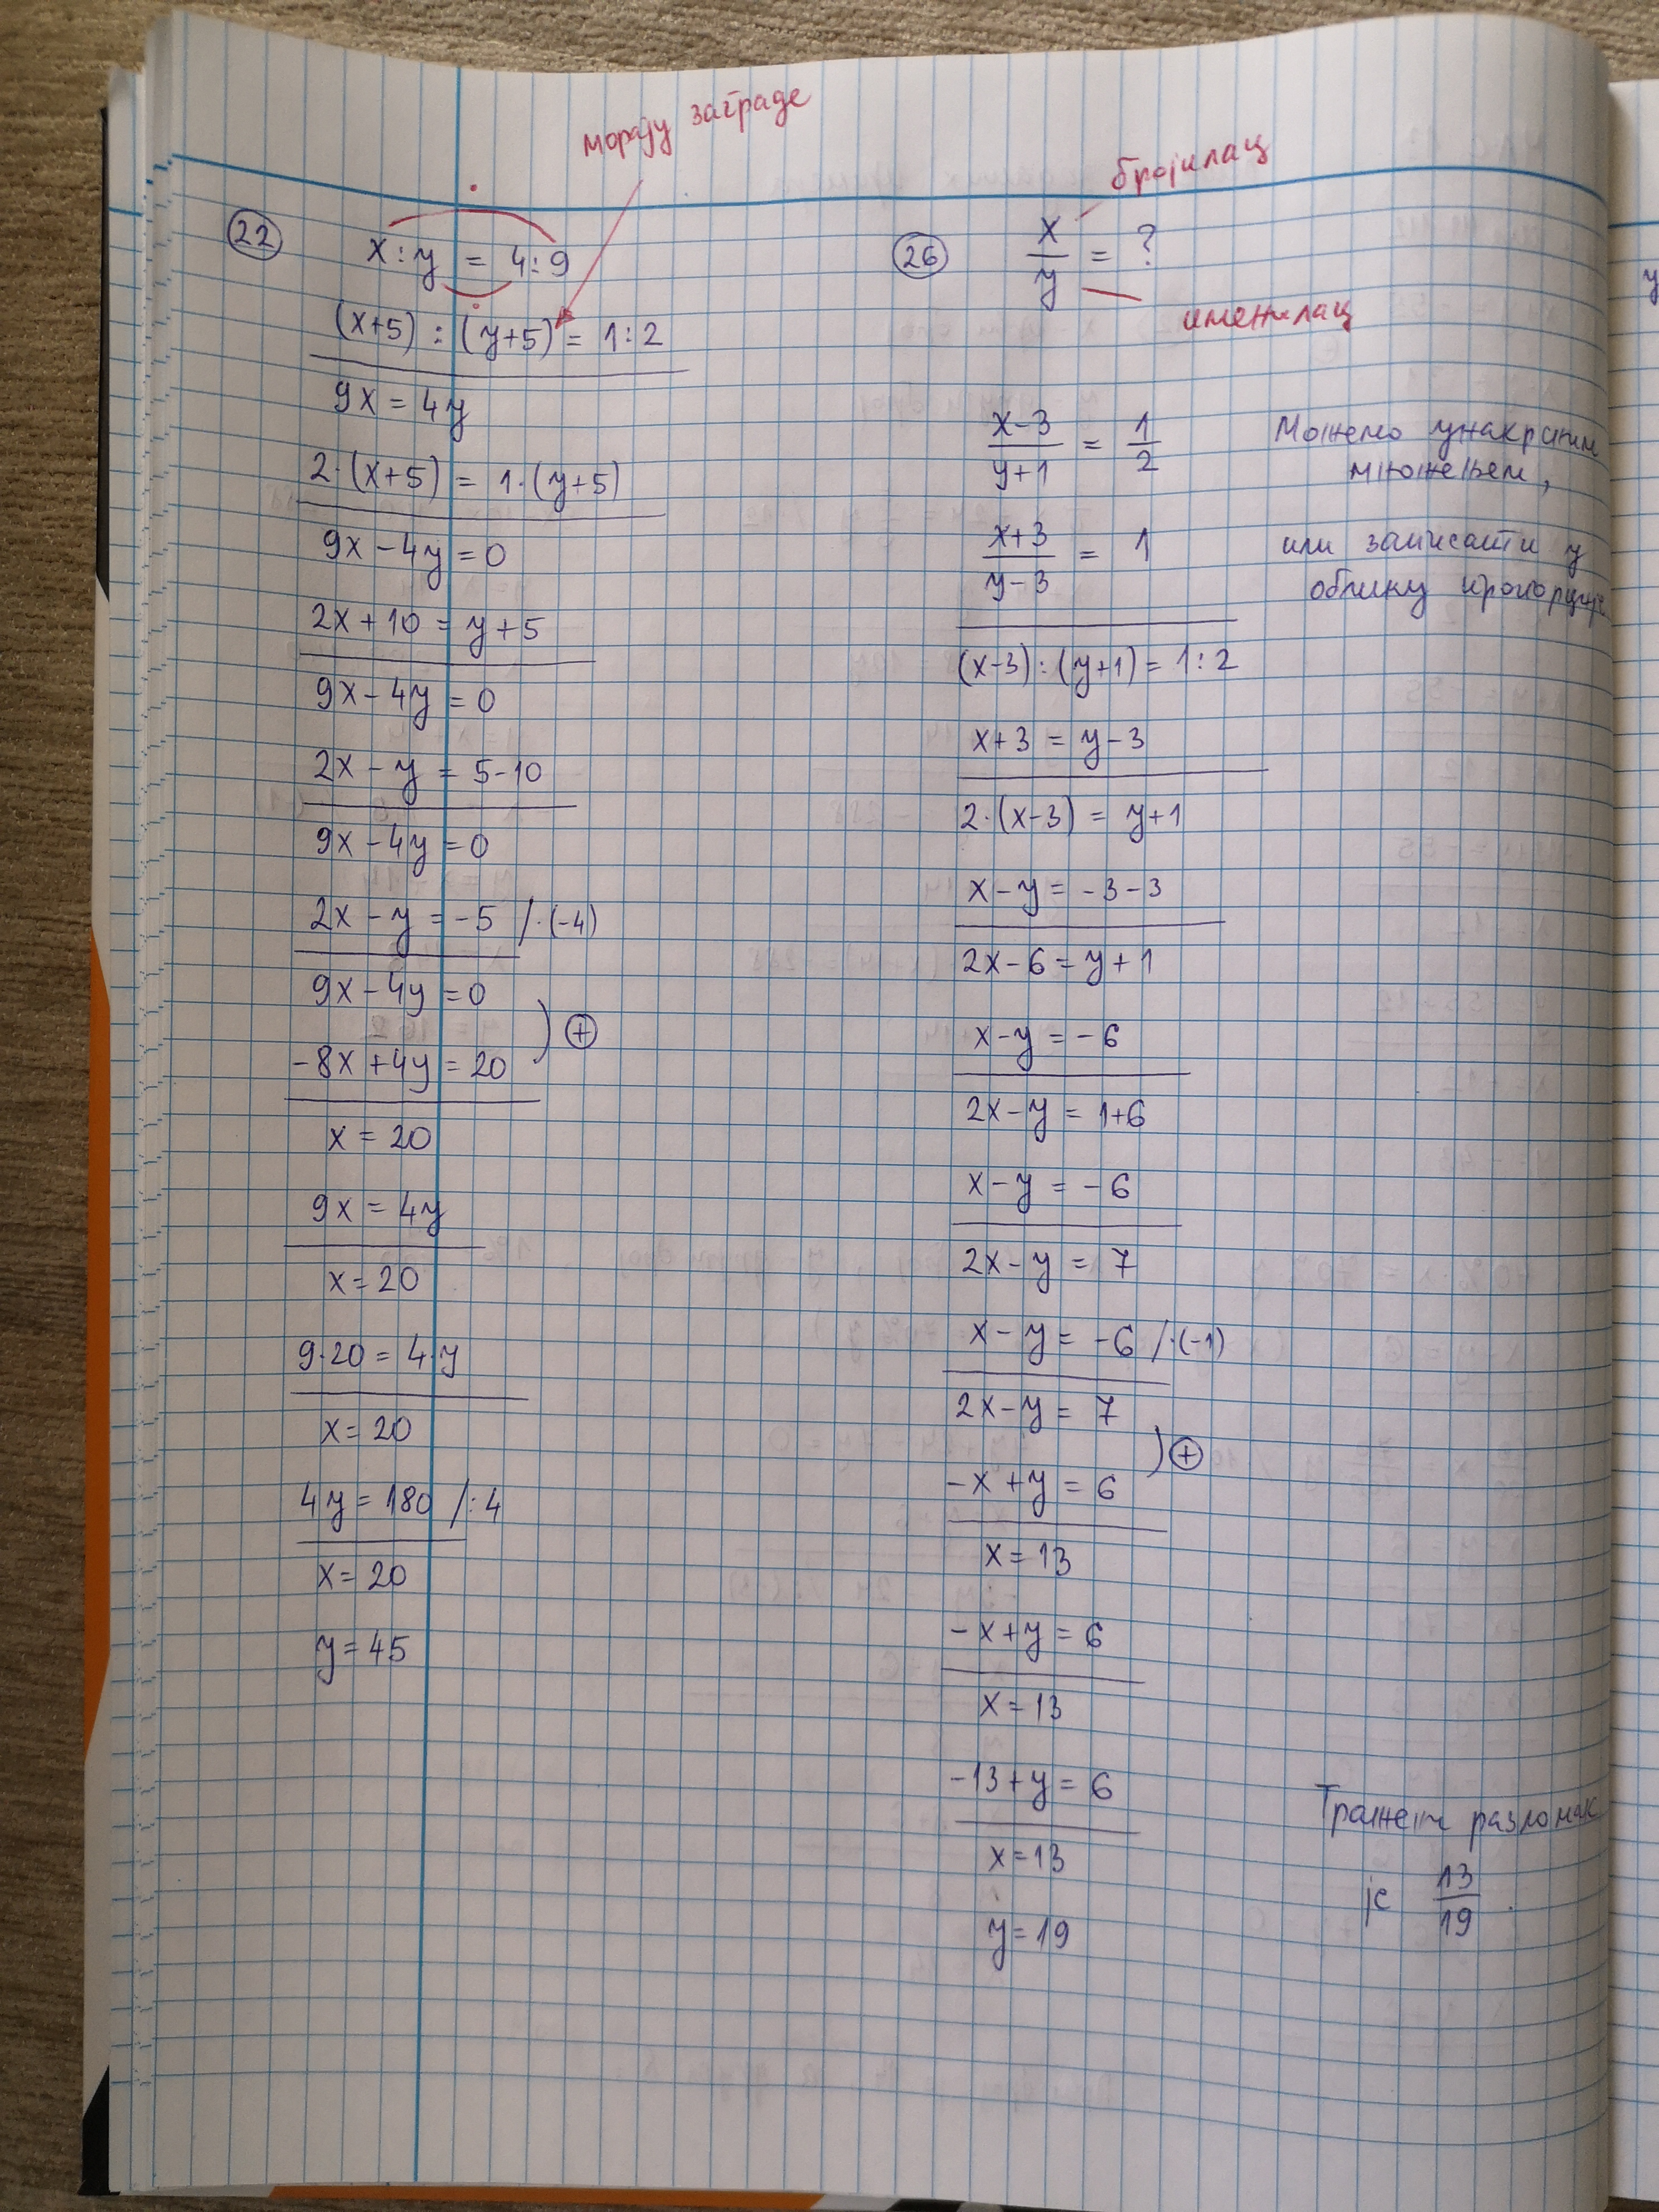 морају заграде
22
x : y = 4 : 9
(x+5) : (y+5) = 1 : 2
9x = 4y
2·(x+5) = 1·(y+5)
9x - 4y = 0
2x + 10 = y + 5
9x - 4y = 0
2x - y = 5 - 10
9x - 4y = 0
2x - y = -5 /·(-4)
9x - 4y = 0
-8x + 4y = 20
+
x = 20
9x = 4y
x = 20
9·20 = 4·y
x = 20
4y = 180 /:4
x = 20
y = 45
26
x/y = ?
бројилац
именилац
(x-3)/(y+1) = 1/2
Можемо унакрсним
множењем,
(x+3)/(y-3) = 1
или записати у
облику пропорције
(x-3) : (y+1) = 1 : 2
x+3 = y-3
2·(x-3) = y+1
x - y = -3 - 3
2x - 6 = y + 1
x - y = -6
2x - y = 1+6
x - y = -6
2x - y = 7
x - y = -6 /·(-1)
2x - y = 7
-x + y = 6
+
x = 13
-x + y = 6
x = 13
-13 + y = 6
x = 13
y = 19
Тражени разломак
је 13/19.